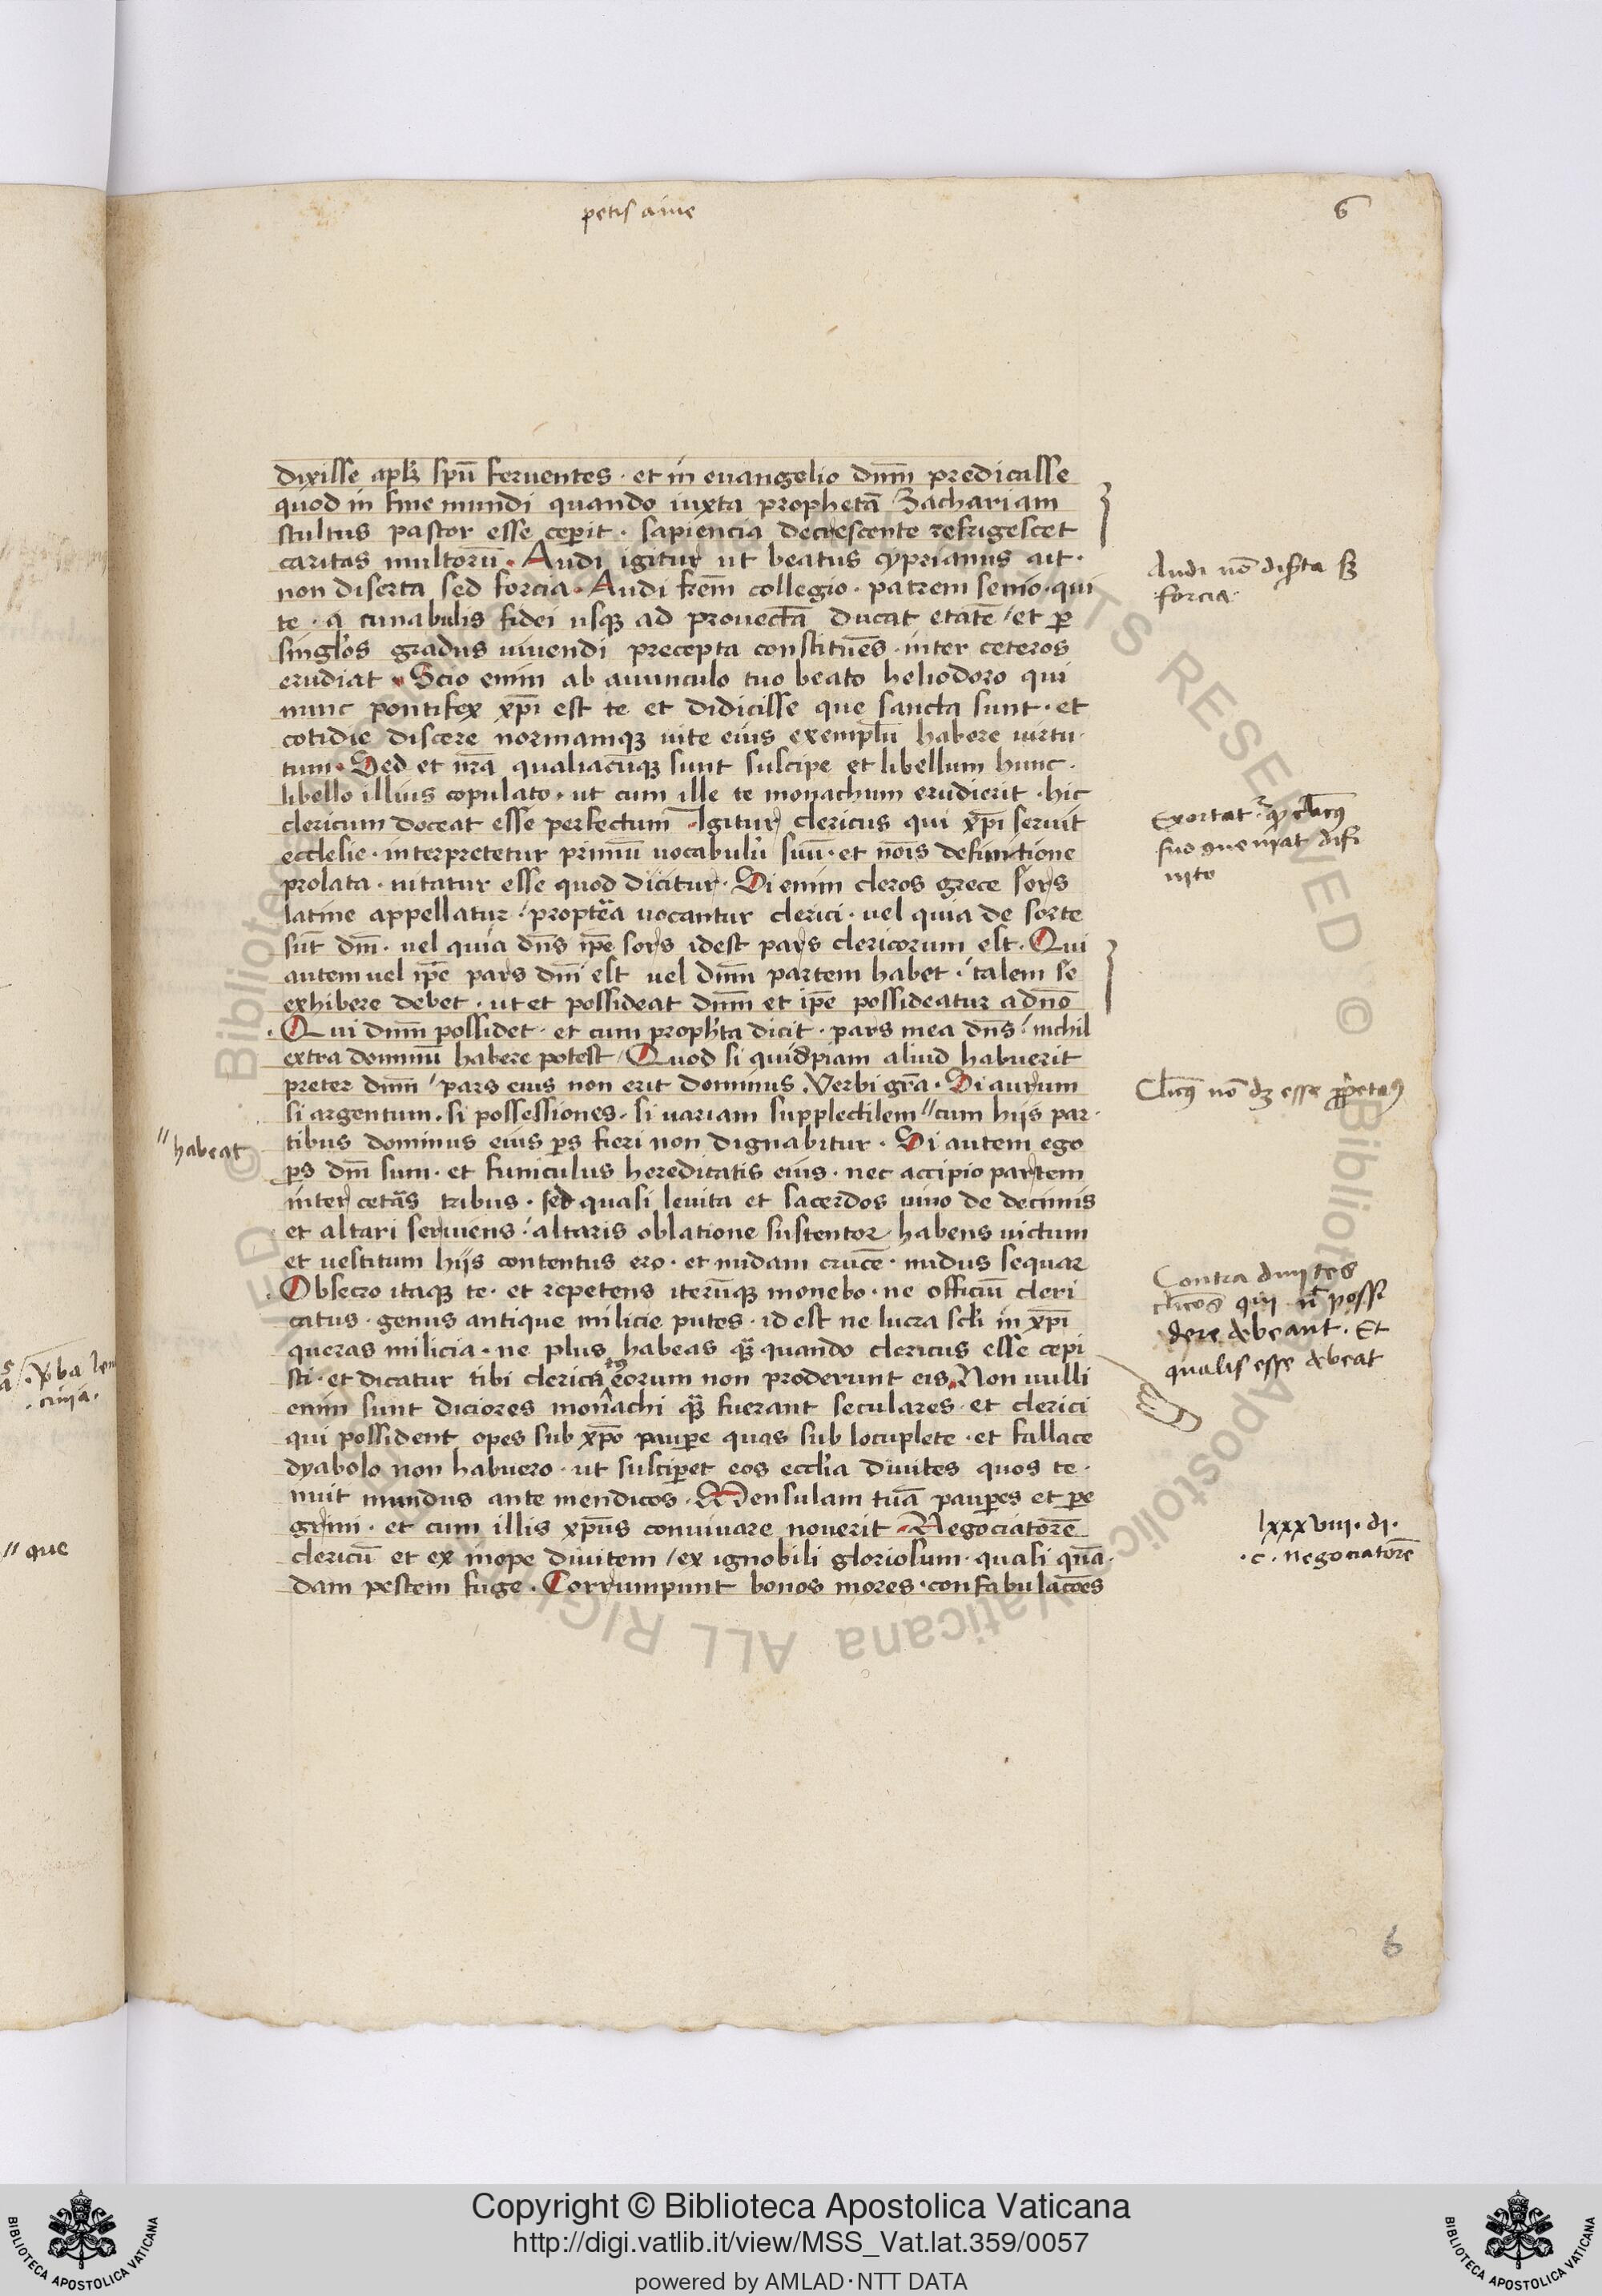 petis aiue
6
dixisse apłꝫ spū feruentes · et in euangelio dn̄m predicasse
quod in fine mundi quando iuxta prophetā Zachariam
stultus pastor esse ceperit · sapiencia decrescente refrigescet
caritas multorū · Audi igitur ut beatus cyprianus ait ·
non diserta sed forcia · Audi frēm collegio · patrem senio · qui
te · a cunabulis fidei usqꝫ ad prouectā ducat etatē / et ꝑ
singl'os gradus uiuendi precepta constituēs · inter ceteros
erudiat · Scio enim ab auunculo tuo beato heliodoro qui
nunc pontifex xp̄i est te et didicisse que sancta sunt · et
cotidie discere normamqꝫ uite eius exemplū habere uirtu-
tum · Sed et nr̄a qualiacūqꝫ sunt suscipe et libellum hunc ·
libello illius copulato · ut cum ille te monachum erudierit · hic
clericum doceat esse perfectum Igitur clericus qui xp̄i seruit
ecclesie · interpretetur primū uocabulū suū · et nōis definictione
prolata · nitatur esse quod dicitur · Si enim cleros grece sors
latine appellatur · propterea uocantur clerici · uel quia de sorte
sūt dn̄i · uel quia dn̄s ip̄e sors idest pars clericorum est · Qui
autem uel ip̄e pars dn̄i est uel dn̄m partem habet · talem se
exhibere debet · ut et possideat dn̄m et ip̄e possideatur a dn̄o
· Qui dn̄m possidet · et cum proph'ta dicit · pars mea dn̄s · nichil
extra dominū habere potest / Quod si quidpiam aliud habuerit
preter dn̄m / pars eius non erit dominus · Verbi grā · Si aurum
si argentum · si possessiones · si uariam supplectilem // cum hijs par-
tibus dominus eius ꝑs fieri non dignabitur · Si autem ego
ꝑs dn̄i sum · et funiculus hereditatis eius · nec accipio partem
inter cetās tribus · sed quasi leuita et sacerdos uiuo de decimis
et altari seruiens · altaris oblatione sustentor · habens uictum
et uestitum hijs contentus ero · et nudam crucē · nudus sequar
· Obsecro itaqꝫ te · et repetens iterūqꝫ monebo · ne officiū cleri
catus · genus antique milicie putes · id est ne lucra scl'i in xp̄i
queras milicia · ne plus habeas qꝫ quando clericus esse cepi
sti · et dicatur tibi clericͥ eorum non proderunt eis · Non nulli
enim sunt diciores monachi qꝫ fuerant seculares · et clerici
qui possident opes sub xp̄o pauꝑe quas sub locuplete · et fallace
dyabolo non habuero · ut susciperet eos eccl'ia diuites quos te-
nuit mundus ante mendicos · Mensulam tuā pauꝑes et ꝑe
grini · et cum illis xp̄us conuiuare nouerit · Negociatorē
clericū et ex inope diuitem / ex ignobili gloriosum · quasi quā-
dam pestem fuge · Corrumpunt bonos mores · confabulacōes
Audi nō disꝰta sꝫ
forcia
Exortatꝰ qꝫ cl'icꝰ
suo
Cl'icꝰ nō dꝫ esse
Contra diuites
cl'icos qui n̄ possi
dere debeant · Et
qualis esse debeat
lxxxviii · di ·
· c · negociatorē
// habeat
// que
6
Copyright © Biblioteca Apostolica Vaticana
http://digi.vatlib.it/view/MSS_Vat.lat.359/0057
powered by AMLAD·NTT DATA
BIBLIOTECA APOSTOLICA VATICANA
BIBLIOTECA APOSTOLICA VATICANA